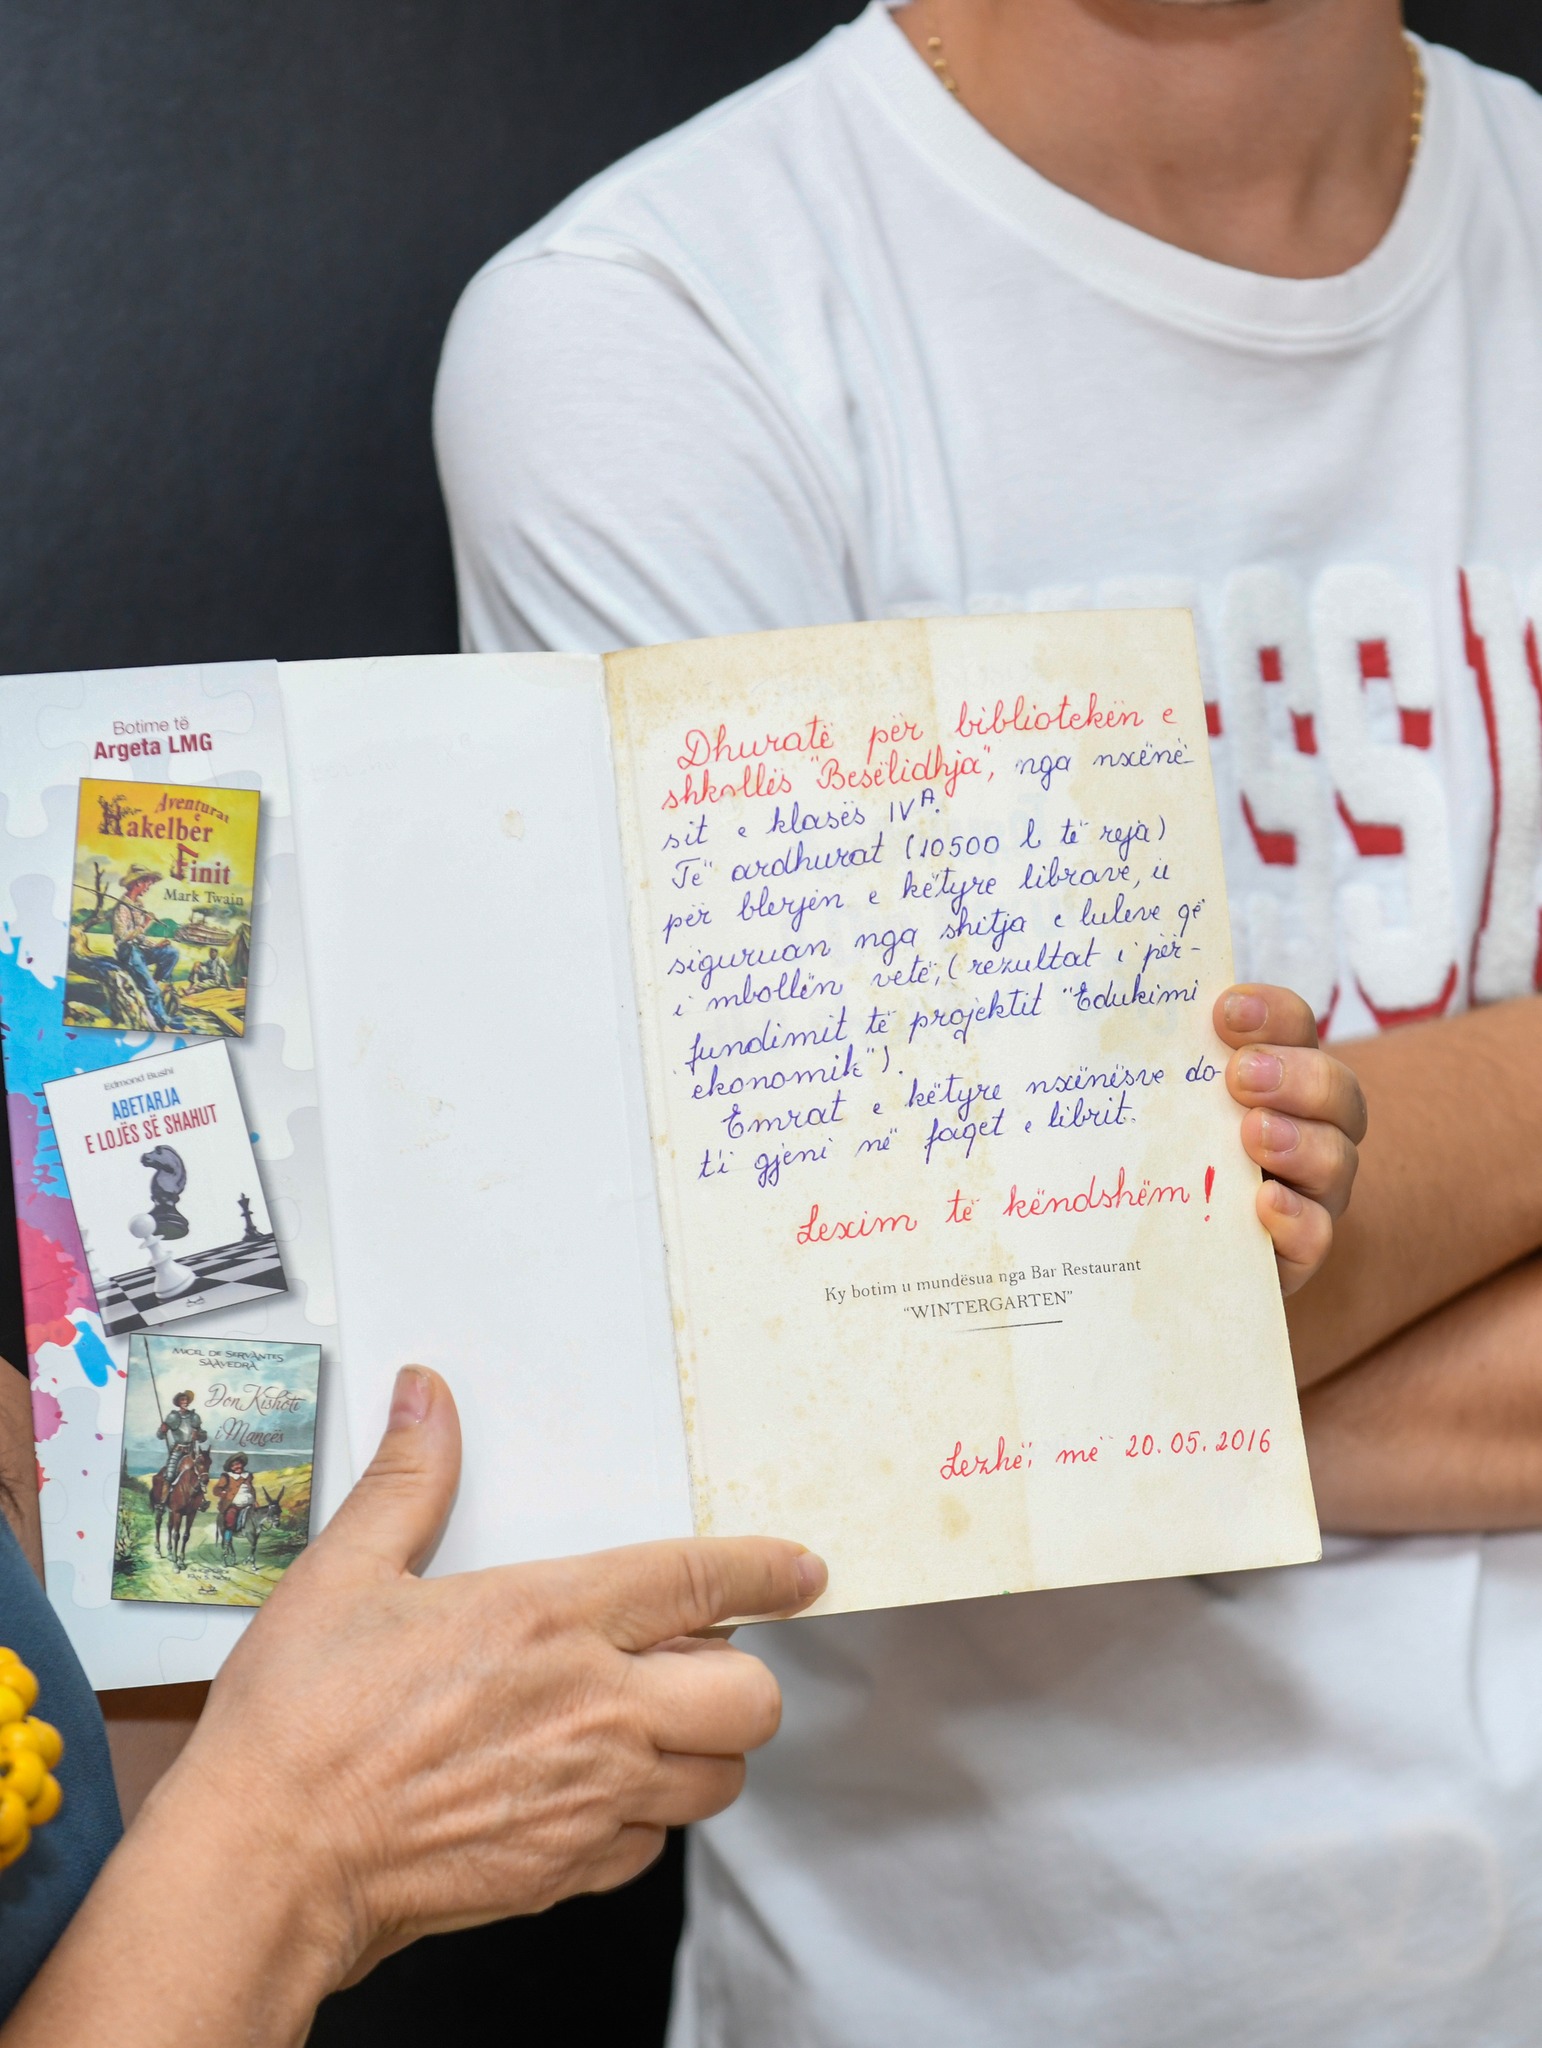 Botime të
Argeta LMG
Aventurat
e
Hakelber
Finit
Mark Twain
Edmond Bushi
ABETARJA
E LOJËS SË SHAHUT
MIGEL DE SERVANTES
SAAVEDRA
Don Kishoti
i Mançës
Dhuratë për bibliotekën e
shkollës "Besëlidhja", nga nxënë-
sit e klasës IVA.
Të ardhurat (10500 l të reja)
për blerjen e këtyre librave, u
siguruan nga shitja e luleve që
i mbollën vetë, (rezultat i për-
fundimit të projektit "Edukimi
ekonomik").
Emrat e këtyre nxënësve do
t'i gjeni në faqet e librit.
Lexim të këndshëm!
Ky botim u mundësua nga Bar Restaurant
"WINTERGARTEN"
Lezhë, më 20.05.2016